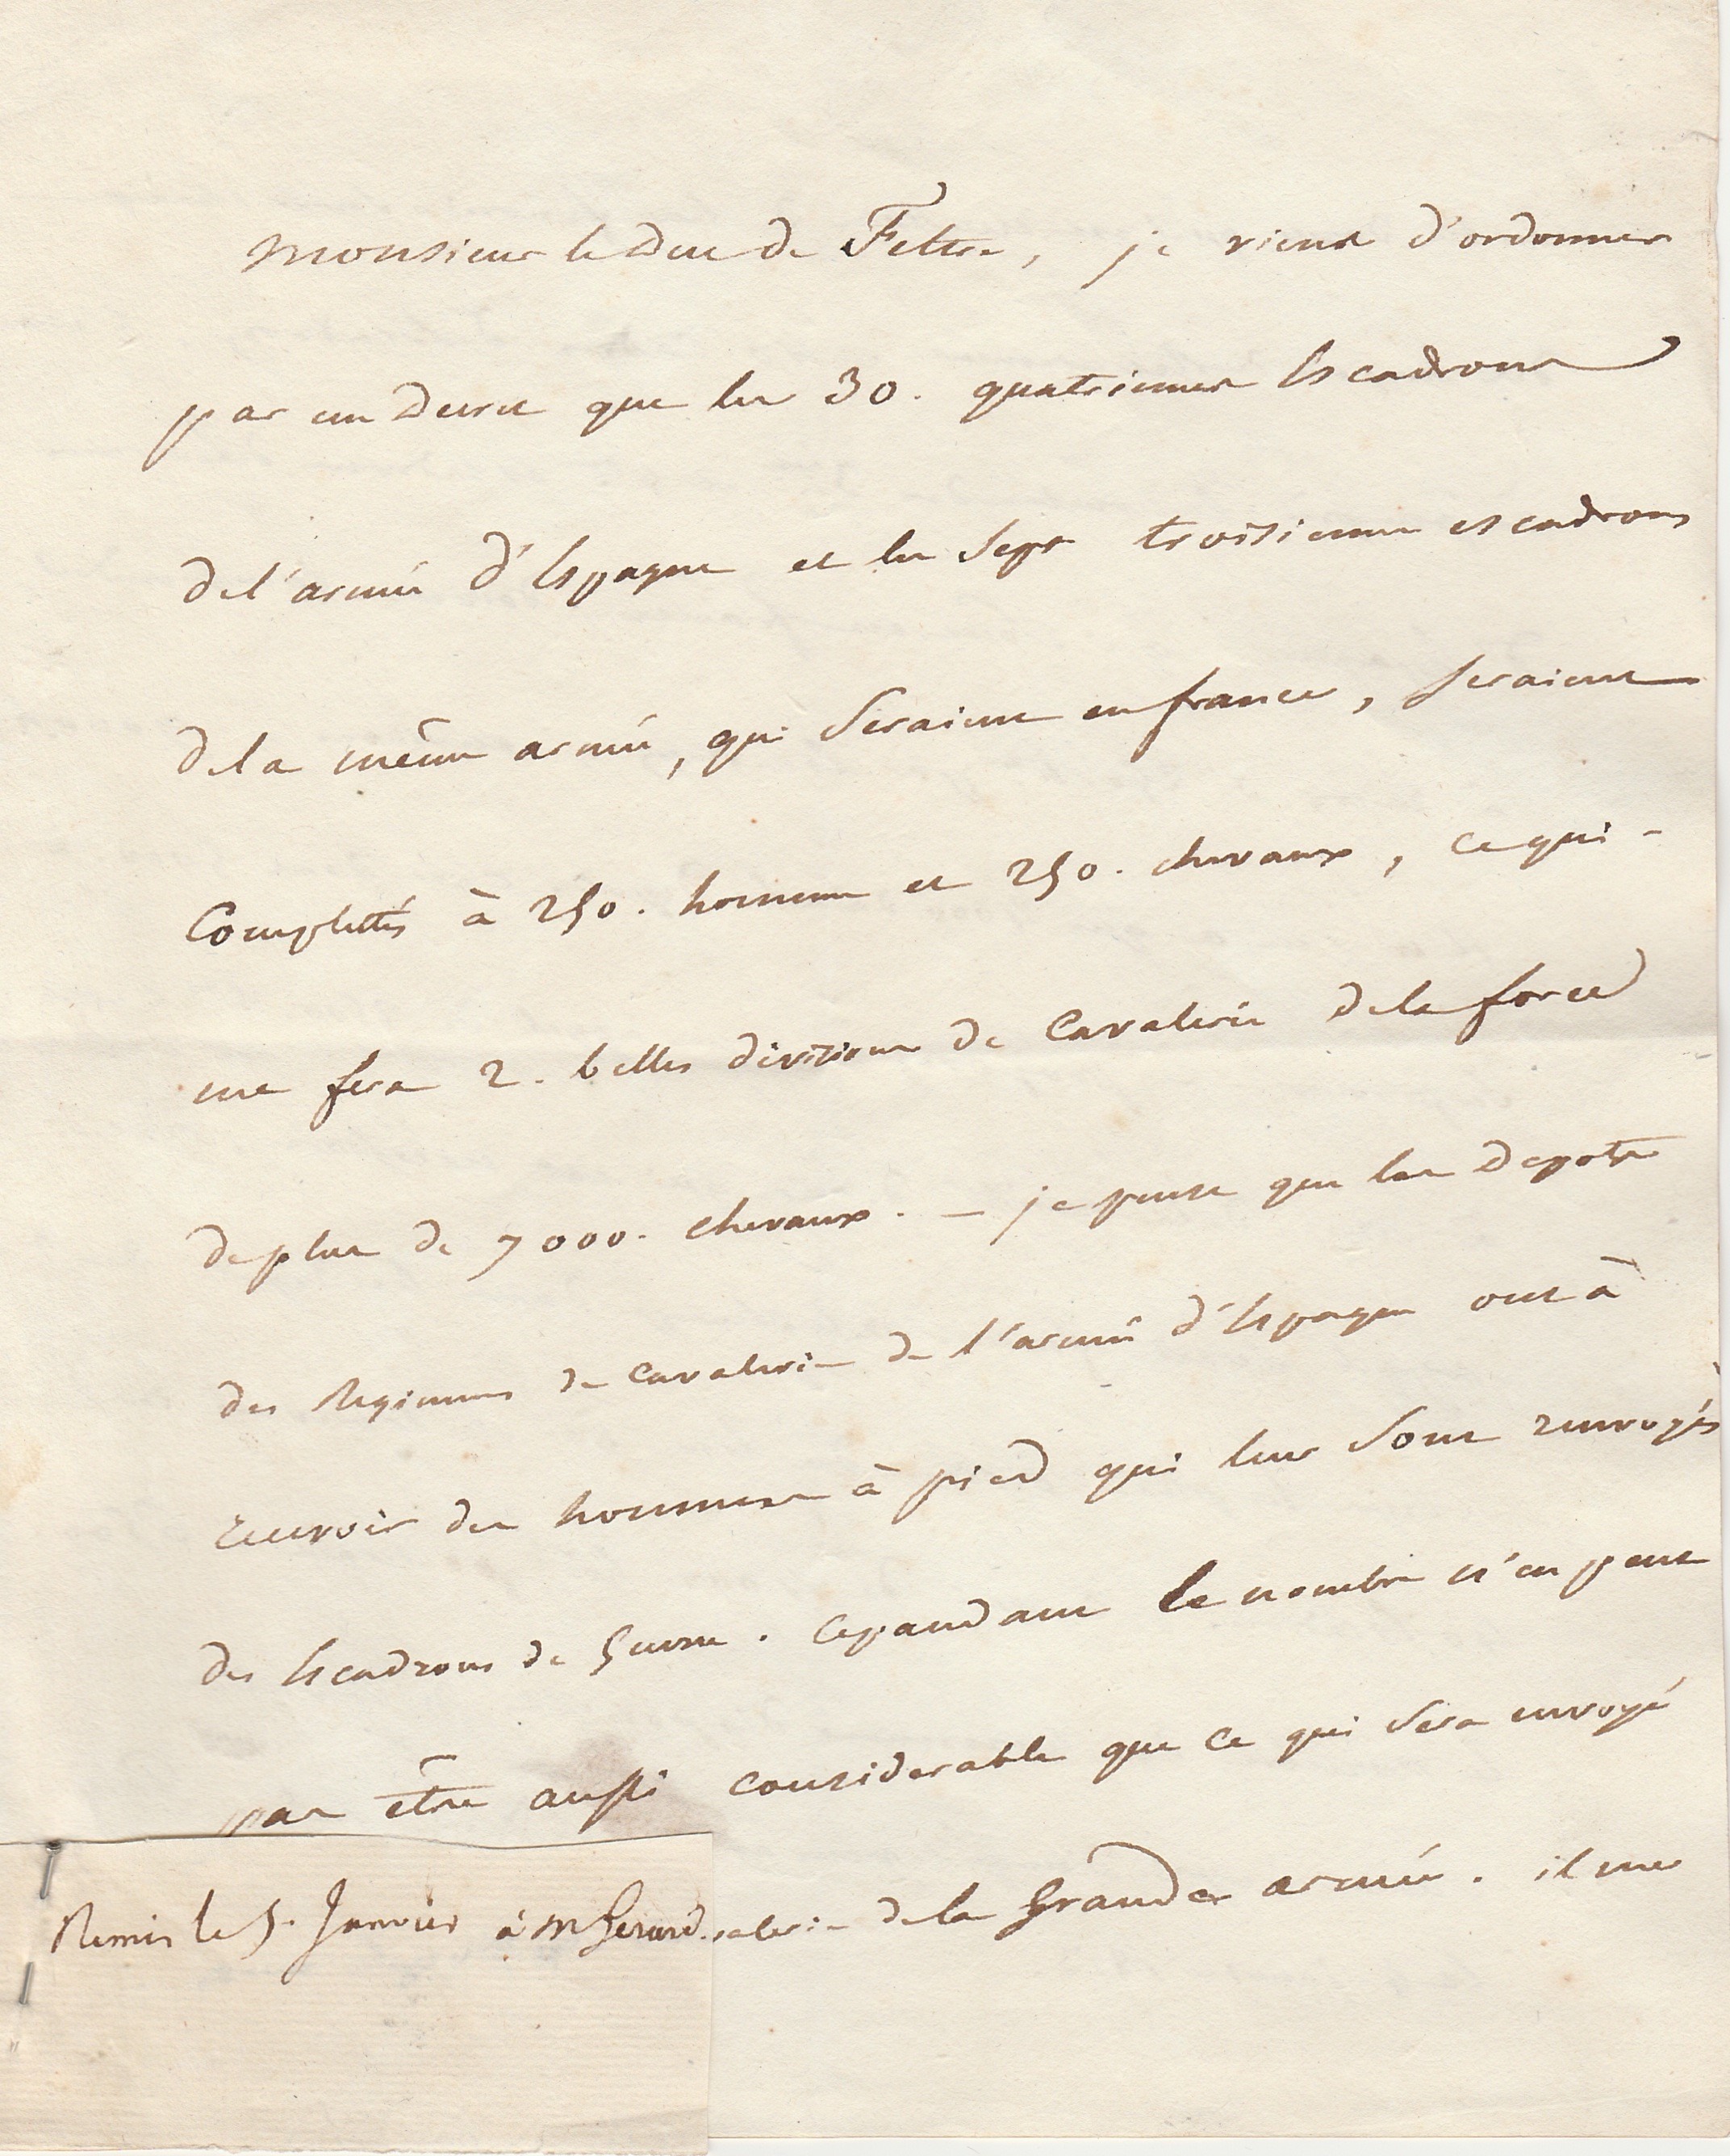 Monsieur le Duc de Feltre, je viens d'ordonner
par un Decret que les 30. quatriemes Escadrons
de l'armée d'Espagne et les Sept troisiemes escadrons
de la même armée, qui Seraient en france, Seraient
Complettés à 250. hommes et 250. chevaux, ce qui -
me fera 2. belles divisions de Cavalerie de la force
de plus de 7000. chevaux. — je pense que les Depots
des Regimens de Cavalerie de l'armée d'Espagne ont à
recevoir des hommes à pied qui leur Sont renvoyés
des Escadrons de Guerre. Cependant le nombre n'en peut
pas être aussi considerable que ce qui Sera envoyé
de la Grande armée. il me
Remis le 5. Janvier à M Gerard.